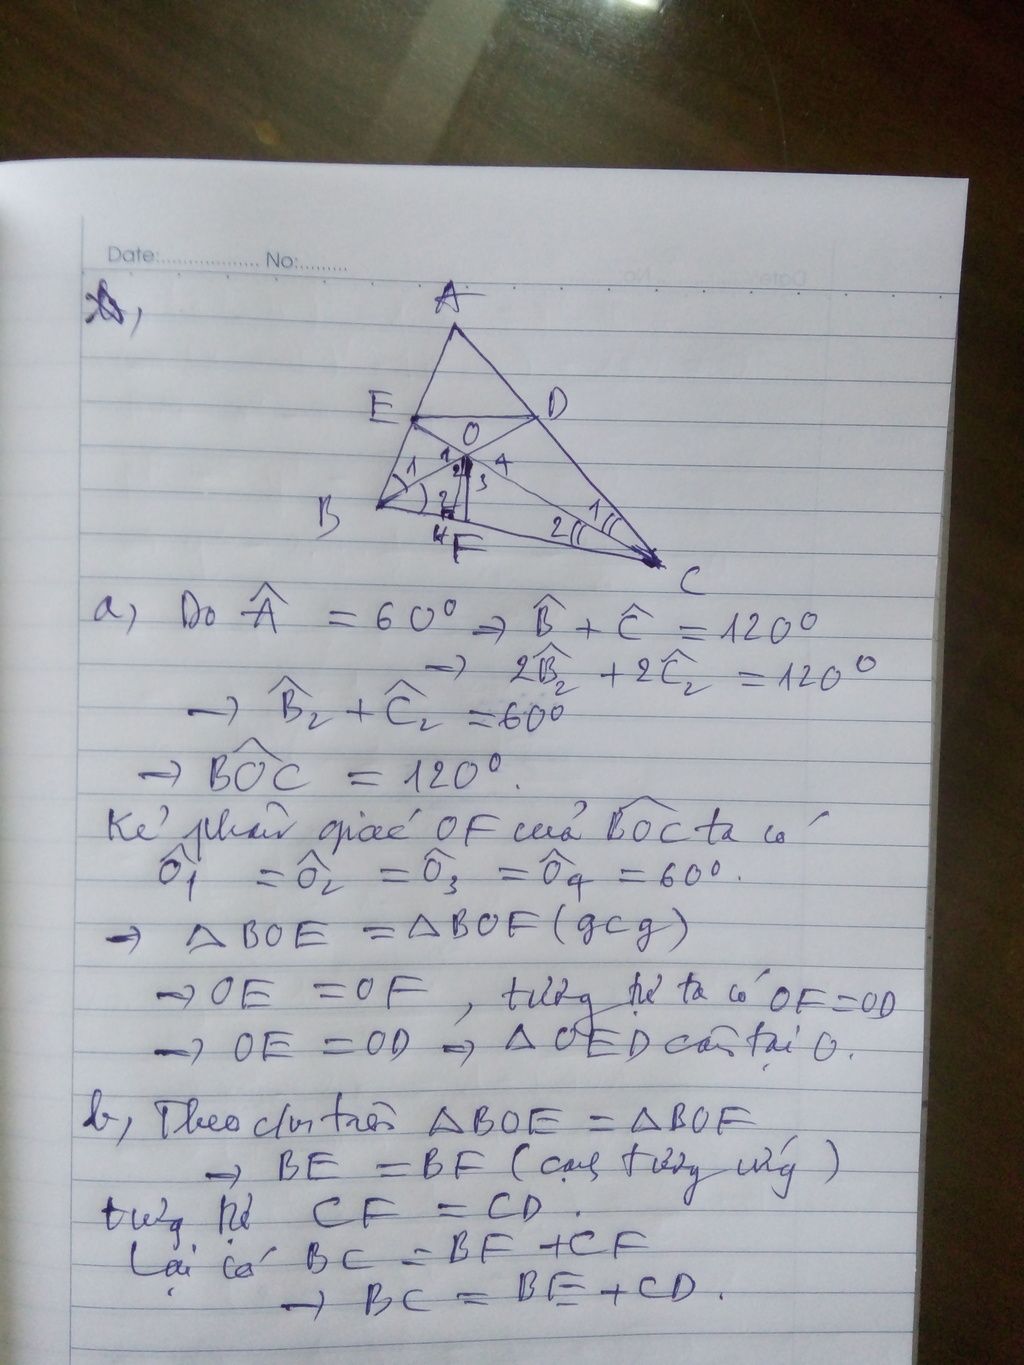 Date:.................. No:.........
b,
A
E
D
O
1
1
2
4
3
B
2
H
F
2
1
C
a, Do Â = 60° → B̂ + Ĉ = 120°
→ 2B̂₂ + 2Ĉ₂ = 120°
→ B̂₂ + Ĉ₂ = 60°
→ BÔC = 120°.
Kẻ phân giác OF của BÔC ta có
Ô₁ = Ô₂ = Ô₃ = Ô₄ = 60°.
→ △BOE = △BOF (gcg)
→ OE = OF, tương tự ta có OF = OD
→ OE = OD → △OED cân tại O.
b, Theo cm trên △BOE = △BOF
→ BE = BF (cạnh tương ứng)
tương tự CF = CD.
Lại có BC = BF + CF
→ BC = BE + CD.